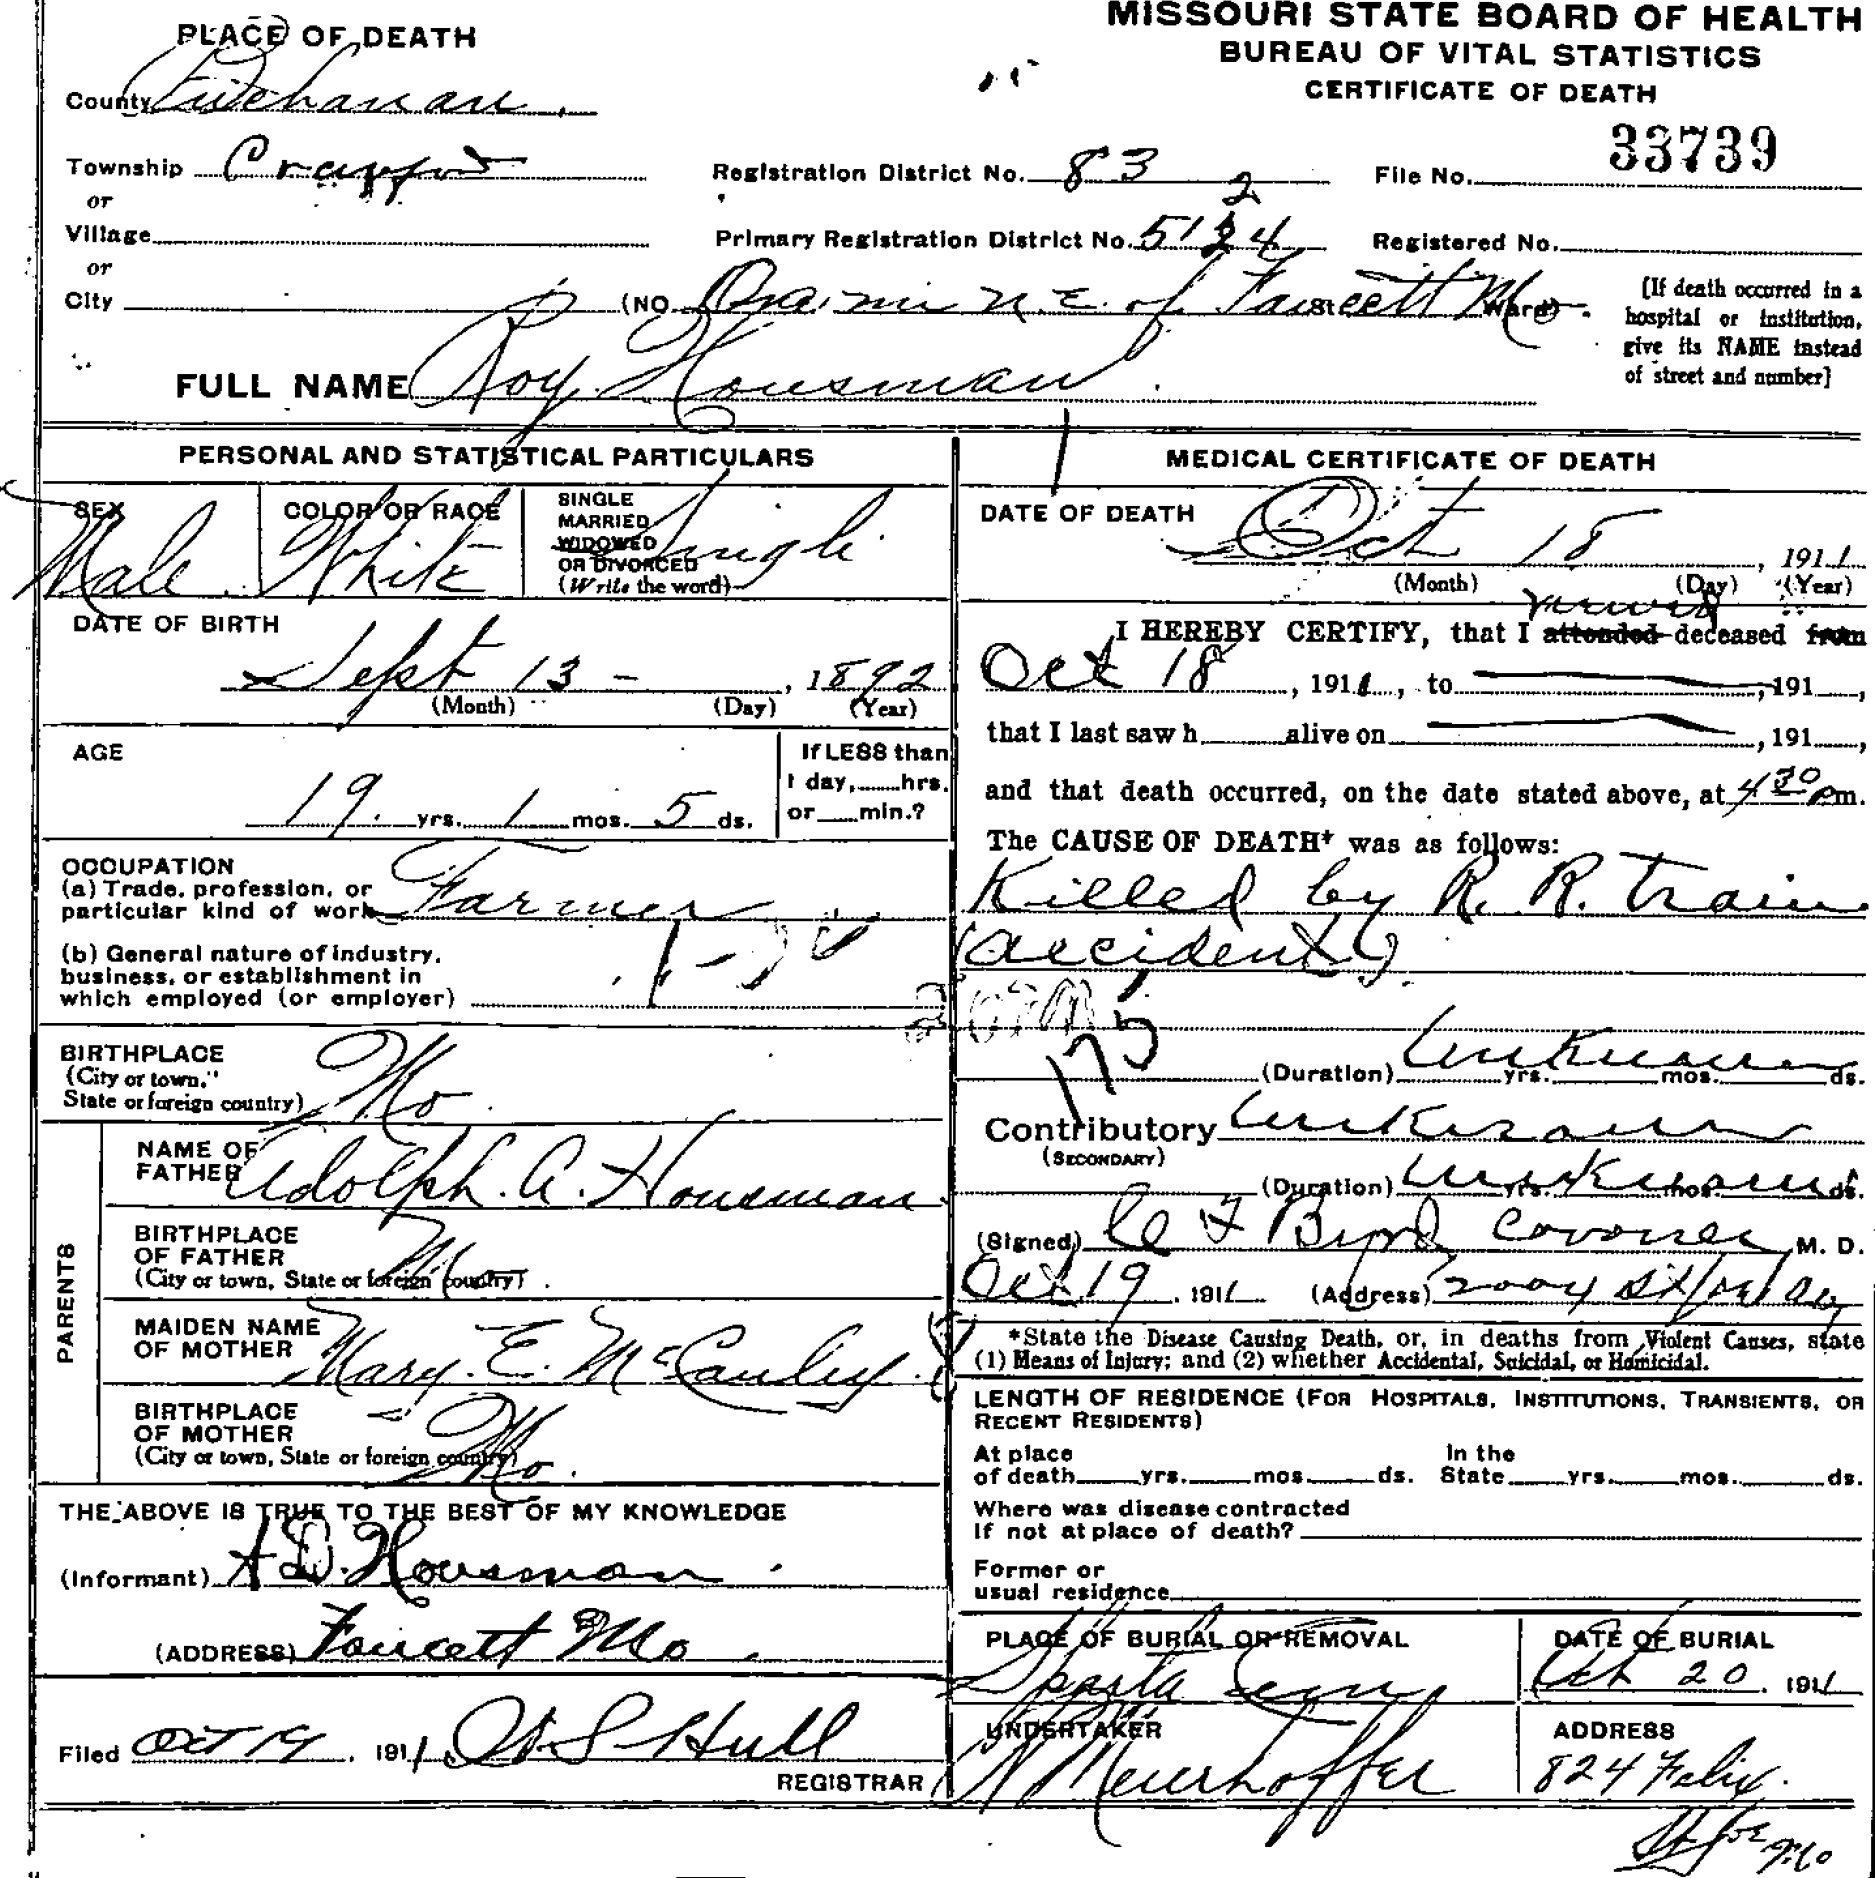 MISSOURI STATE BOARD OF HEALTH
BUREAU OF VITAL STATISTICS
CERTIFICATE OF DEATH
PLACE OF DEATH
County Buchanan
Township Crawford
or
Village
or
City
Registration District No. 83
File No. 33739
2
Primary Registration District No. 5124
Registered No.
(NO. One mi N. E. of Faucett Mo St. Ward)
[If death occurred in a
hospital or institution,
give its NAME instead
of street and number]
FULL NAME Roy Housman
PERSONAL AND STATISTICAL PARTICULARS
SEX
Male
COLOR OR RACE
White
SINGLE
MARRIED
WIDOWED
OR DIVORCED
(Write the word)
Single
DATE OF BIRTH
Sept 13 - , 1892
(Month) (Day) (Year)
AGE
19 yrs. 1 mos. 5 ds.
If LESS than
1 day, hrs.
or min.?
OCCUPATION
(a) Trade, profession, or
particular kind of work Farmer
(b) General nature of industry,
business, or establishment in
which employed (or employer)
BIRTHPLACE
(City or town,
State or foreign country) Mo.
PARENTS
NAME OF
FATHER Adolph. A. Housman
BIRTHPLACE
OF FATHER
(City or town, State or foreign country) Mo.
MAIDEN NAME
OF MOTHER Mary. E. McCauley
BIRTHPLACE
OF MOTHER
(City or town, State or foreign country) Mo.
THE ABOVE IS TRUE TO THE BEST OF MY KNOWLEDGE
(Informant) A D. Housman
(ADDRESS) Faucett Mo
Filed Oct 19, 1911 Hull
REGISTRAR
MEDICAL CERTIFICATE OF DEATH
DATE OF DEATH
Oct 18, 1911
(Month) (Day) (Year)
viewed
I HEREBY CERTIFY, that I attended deceased from
Oct 18, 1911, to , 191 ,
that I last saw h alive on , 191 ,
and that death occurred, on the date stated above, at 4 30 Pm.
The CAUSE OF DEATH* was as follows:
Killed by R. R. train
(accident)
175
(Duration) unknown yrs. mos. ds.
Contributory unknown
(SECONDARY)
(Duration) unknown yrs. mos. ds.
(Signed) Byrd Coroner M. D.
Oct 19, 1911 (Address)
*State the Disease Causing Death, or, in deaths from Violent Causes, state
(1) Means of Injury; and (2) whether Accidental, Suicidal, or Homicidal.
LENGTH OF RESIDENCE (FOR HOSPITALS, INSTITUTIONS, TRANSIENTS, OR
RECENT RESIDENTS)
At place
of death yrs. mos. ds.
In the
State yrs. mos. ds.
Where was disease contracted
If not at place of death?
Former or
usual residence
PLACE OF BURIAL OR REMOVAL
Sparta Cem
DATE OF BURIAL
Oct 20, 1911
UNDERTAKER
Meierhoffer
ADDRESS
824 Felix.
St Joe Mo